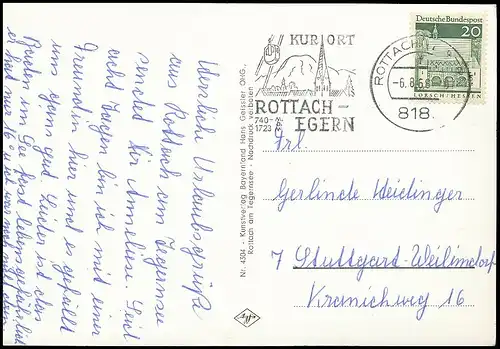 Herzliche Urlaubsgrüße
aus Rottach am Tegernsee
sendet dir Anneliese. Seit
acht Tagen bin ich mit einer
Freundin hier und es gefällt
uns ganz gut. Leider ist das
Baden im See fast lebensgefährlich
er hat nur 16° u ich war noch nicht
Nr. 4304 - Kunstverlag Bayernland Hans Geissler OHG.,
Rottach am Tegernsee - Nachdruck verboten
Agfa
KURORT
ROTTACH-
EGERN
740-
1723 m
ROTTACH
-6.8.68
818
Deutsche Bundespost
20
LORSCH/HESSEN
Frl.
Gerlinde Weidinger
7 Stuttgart-Weilimdorf
Kranichweg 16